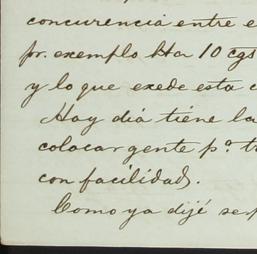 concurencia entre e
pr. exemplo Ha 10 cgs
y lo que exede esta c
Hay dia tiene la
colocar gente pa. tr
con facilidad.
Como ya dijé se